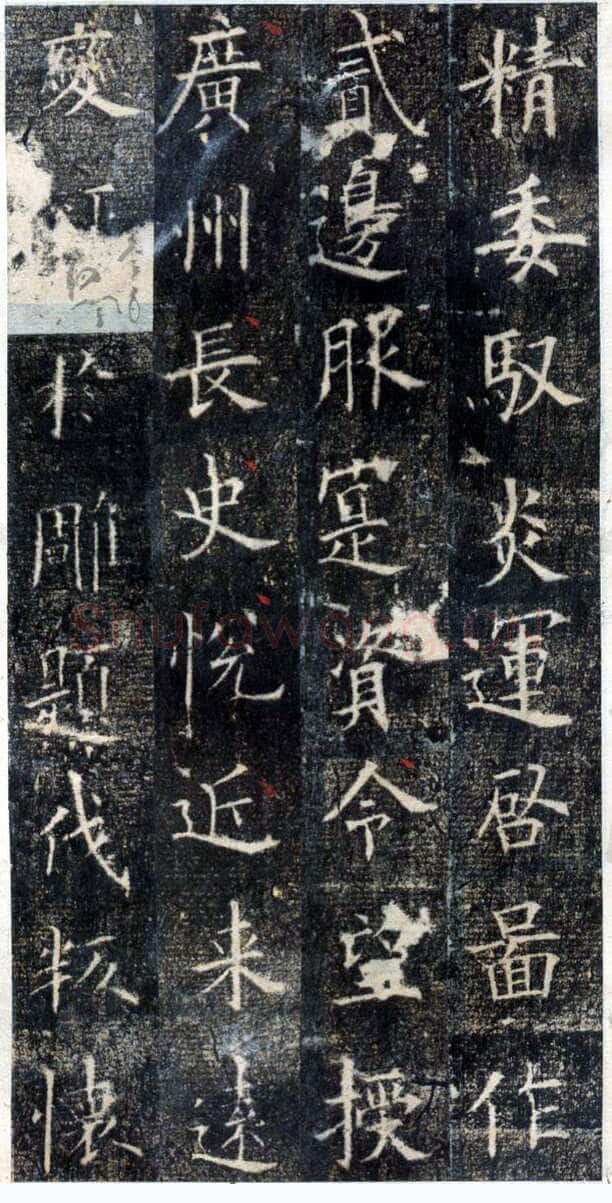 精委馭炎運启啚作
貳邊服寔資令望授
廣州長史悅近来遠
變於雕題伐叛懷